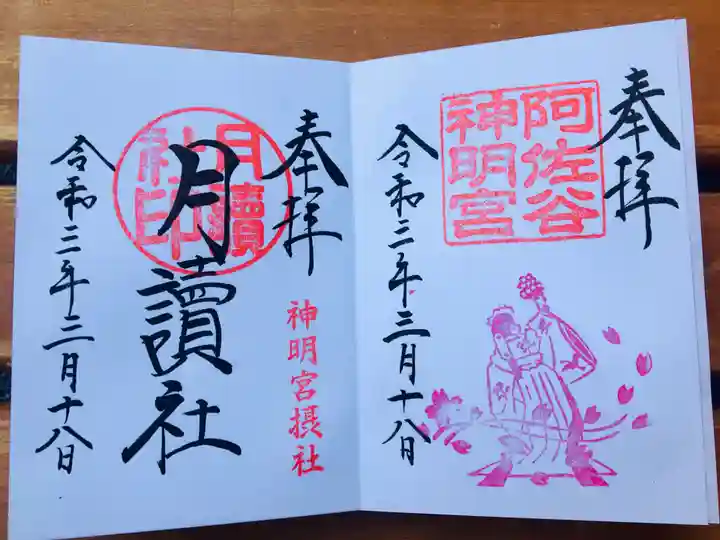 奉拝
阿佐谷
神明宮
令和三年三月十八日
奉拝
神明宮摂社
月讀
社印
月讀社
令和三年三月十八日